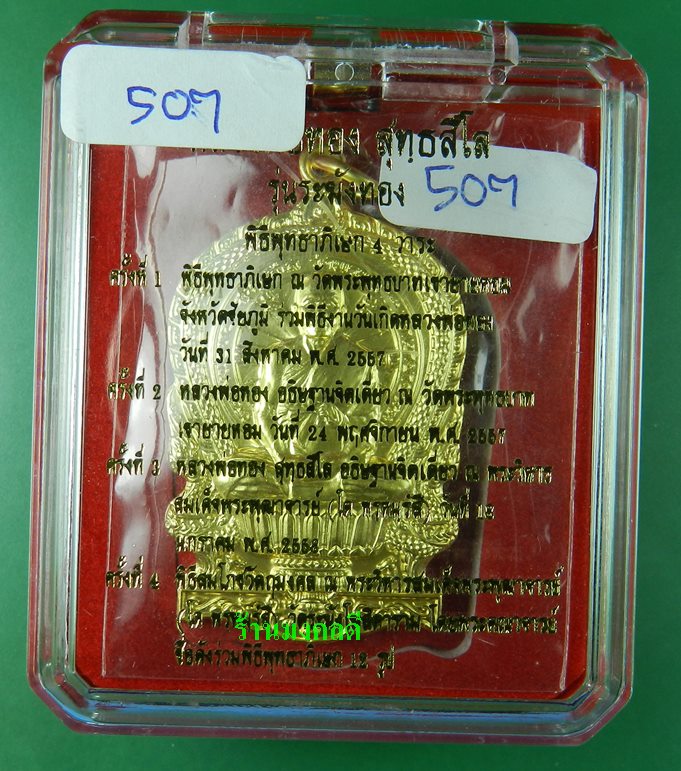 507
ทอง สุทธสีโล
รุ่นระฆังทอง
507
พิธีพุทธาภิเษก 4 วาระ
ครั้งที่ 1 พิธีพุทธาภิเษก ณ วัดพระพุทธบาทเขายายหอม
จังหวัดชัยภูมิ รวมพิธีงานวันเกิดหลวงพ่อทอง
วันที่ 31 สิงหาคม พ.ศ. 2557
ครั้งที่ 2 หลวงพ่อทอง อธิษฐานจิตเดี่ยว ณ วัดพระพุทธบาท
เขายายหอม วันที่ 24 พฤศจิกายน พ.ศ. 2557
ครั้งที่ 3 หลวงพ่อทอง สุทธสีโล อธิษฐานจิตเดี่ยว ณ พระวิหาร
สมเด็จพระพุฒาจารย์ (โต พรหมรังสี) วันที่ 12
มกราคม พ.ศ. 2558
ครั้งที่ 4 พิธีสมโภชวัตถุมงคล ณ พระวิหารสมเด็จพระพุฒาจารย์
(โต
ร้านมงคลดี
ชื่อดังร่วมพิธีพุทธาภิเษก 12 รูป